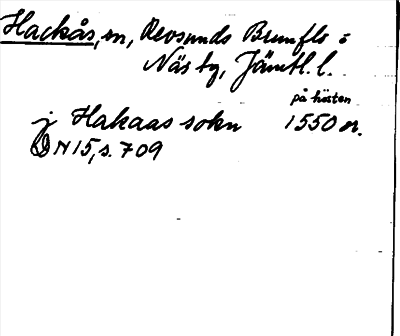 Hackås, sn, Revsunds Brunflo o
Näs tg, Jämtl. l.
på hösten
j Hakaas sokn 1550 er.
DN 15, s. 709